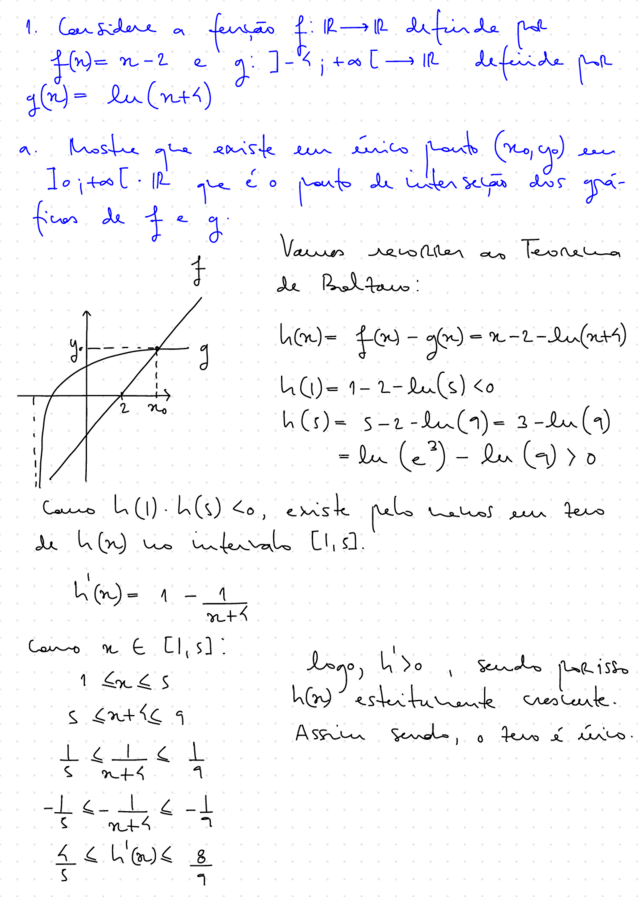 1. Considere a função f: ℝ → ℝ definida por
f(x) = x - 2 e g: ]-4; +∞[ → ℝ definida por
g(x) = ln(x+4)
a. Mostre que existe um único ponto (x₀, y₀) em
]0; +∞[ · ℝ que é o ponto de interseção dos grá-
ficos de f e g.
f
y₀
g
2
x₀
Vamos recorrer ao Teorema
de Bolzano:
h(x) = f(x) - g(x) = x - 2 - ln(x+4)
h(1) = 1 - 2 - ln(5) < 0
h(5) = 5 - 2 - ln(9) = 3 - ln(9)
= ln(e³) - ln(9) > 0
Como h(1) · h(5) < 0, existe pelo menos um zero
de h(x) no intervalo [1, 5].
h'(x) = 1 - 1/(x+4)
Como x ∈ [1, 5]:
1 ≤ x ≤ 5
5 ≤ x+4 ≤ 9
1/5 ≤ 1/(x+4) ≤ 1/9
-1/5 ≤ -1/(x+4) ≤ -1/9
4/5 ≤ h'(x) ≤ 8/9
logo, h' > 0, sendo por isso
h(x) estritamente crescente.
Assim sendo, o zero é único.